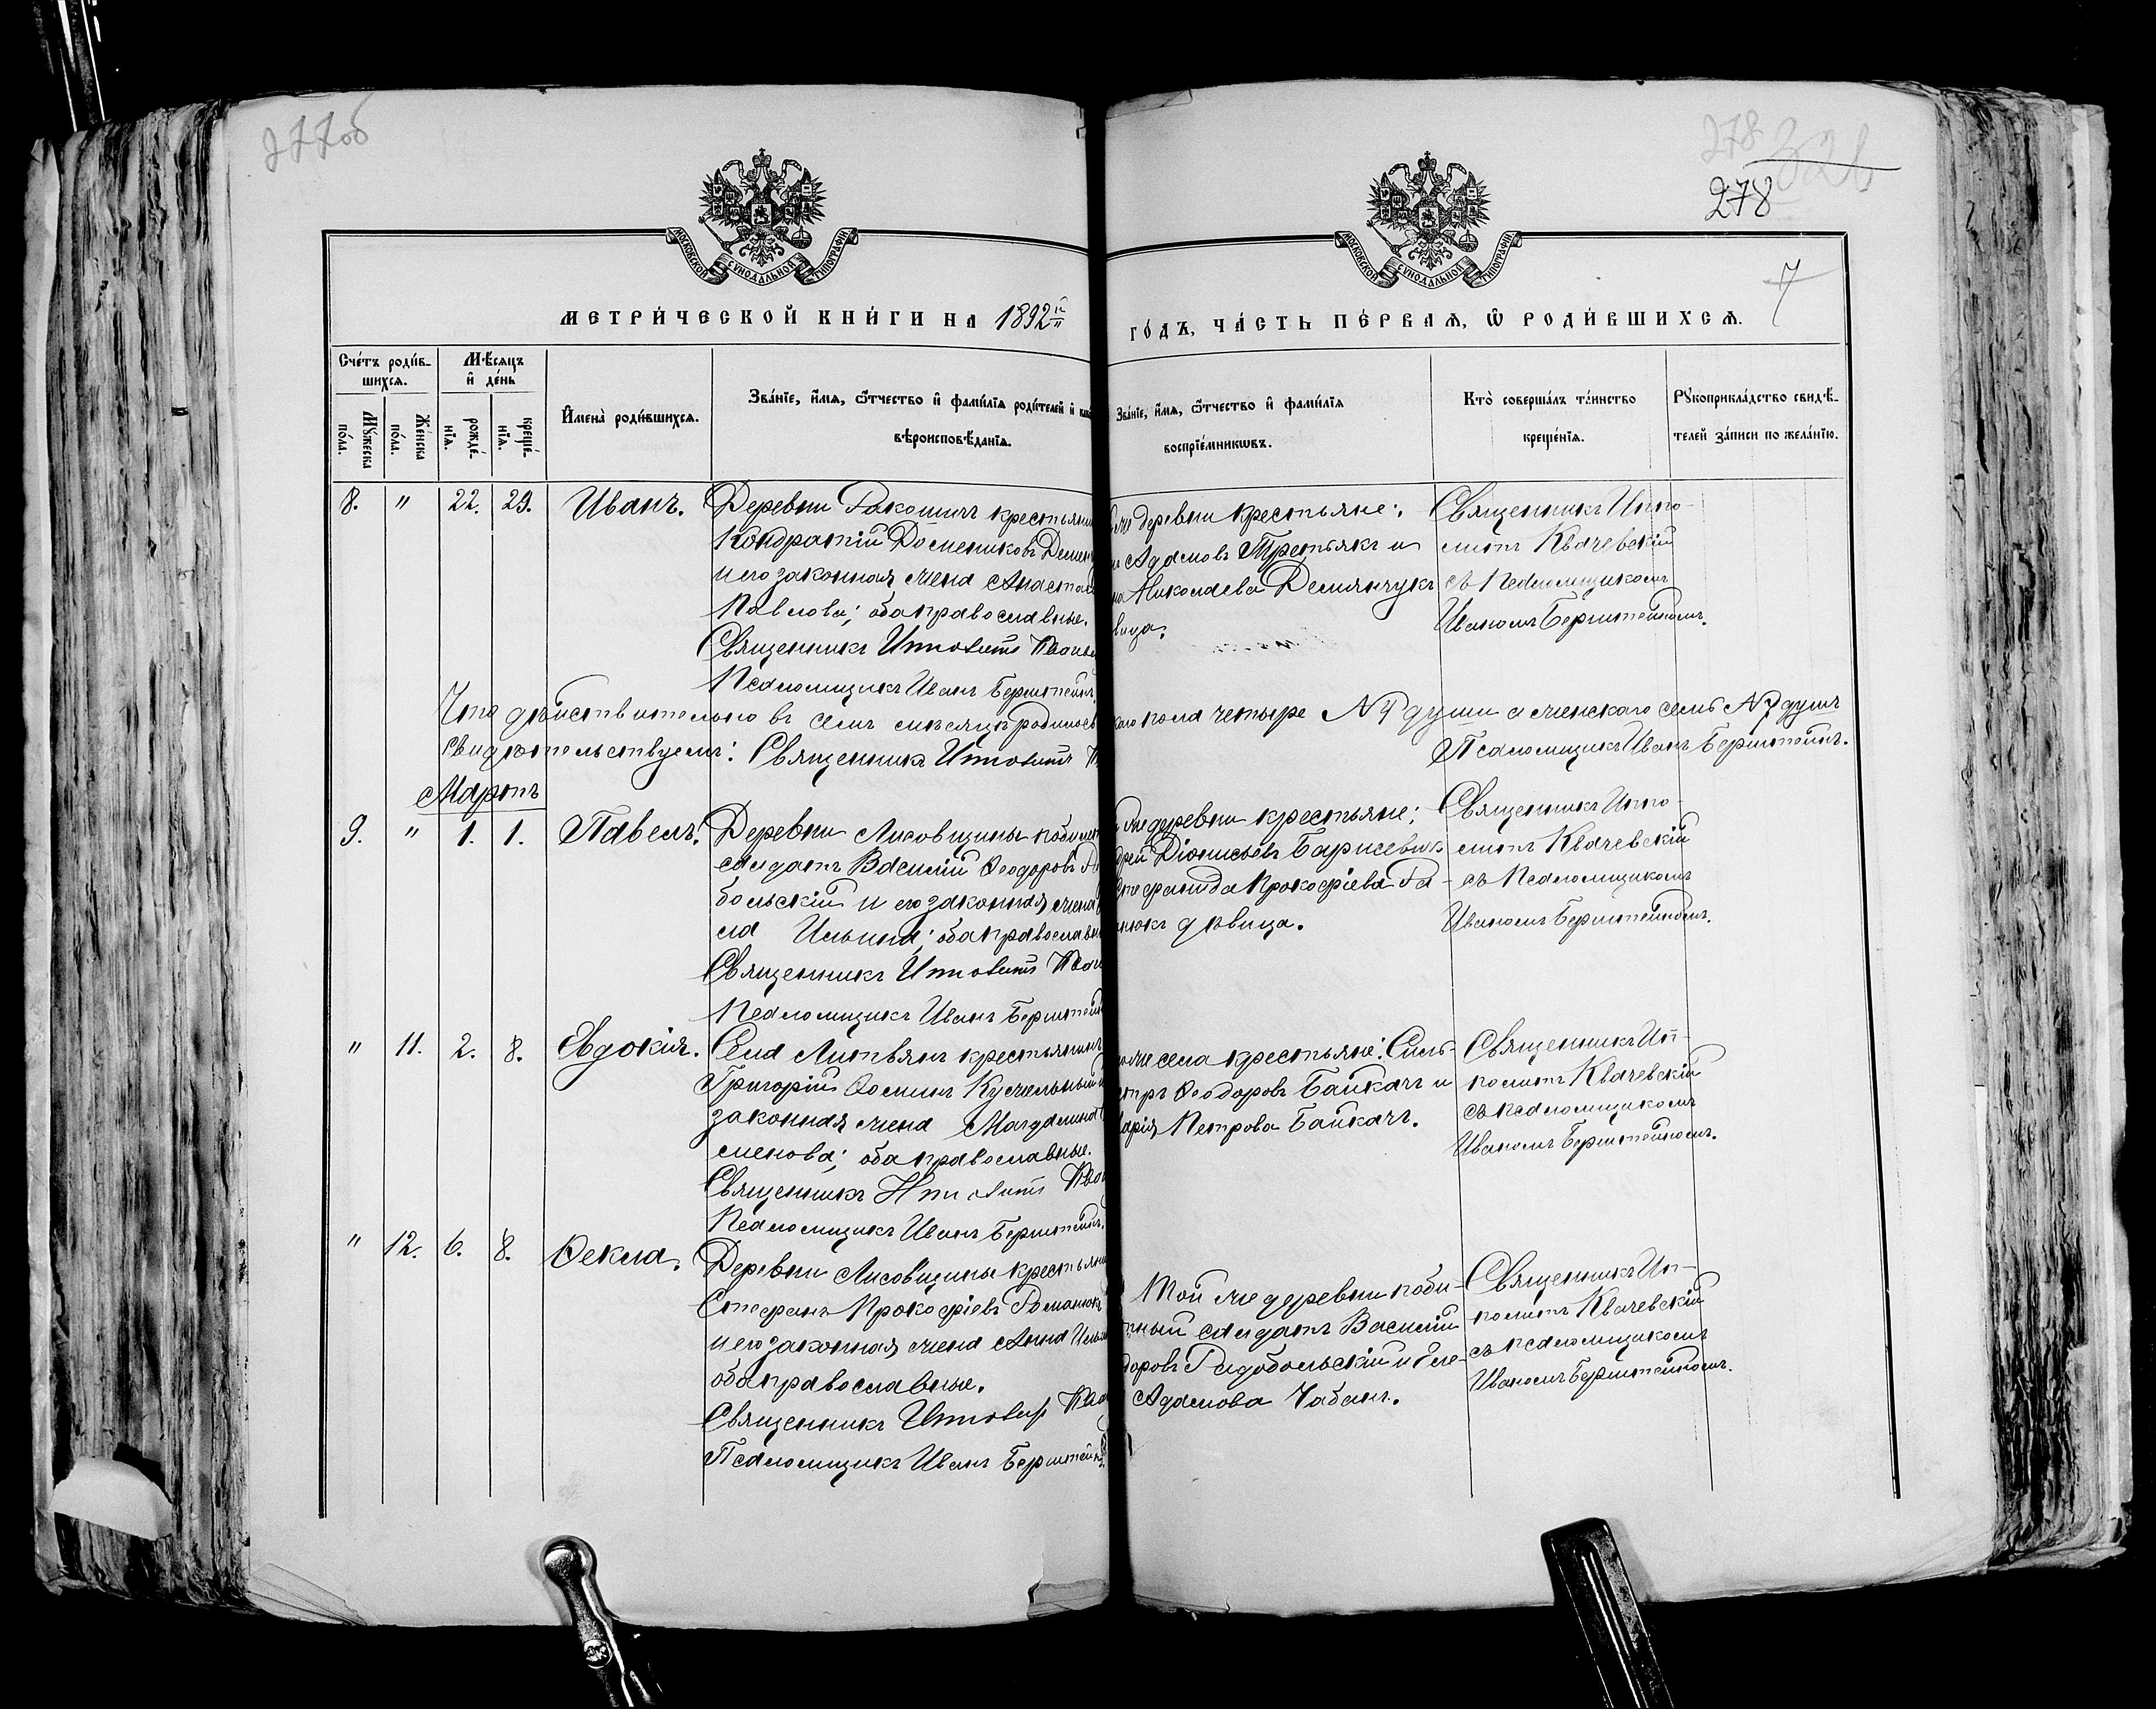 277об
278
321
278
7
МОСКОВСКОЙ СѴНОДАЛЬНОЙ ТИПОГРАФІИ
МОСКОВСКОЙ СѴНОДАЛЬНОЙ ТИПОГРАФІИ
МЕТРИ́ЧЕСКОЙ КНИ́ГИ НА 1892й
ГО́ДЪ, ЧА́СТЬ ПЕ́РВАѦ, Ѽ РОДИ́ВШИХСѦ.
Сче́тъ роди́в-
шихсѧ.
Мꙋжеска по́ла.
Же́нска по́ла.
Мѣ́сяцъ
и҆ де́нь
рожде́-
нїѧ.
креще́-
нїѧ.
И҆мена̀ роди́вшихсѧ.
Зва́нїе, и҆́мѧ, ѻ҆́тчество и҆ фами́лїѧ роди́телей и҆
вѣроисповѣ́данїѧ.
Зва́нїе, и҆́мѧ, ѻ҆́тчество и҆ фами́лїѧ
воспрїе́мникѡвъ.
Кто̀ соверша́лъ та́инство
креще́нїѧ.
Рꙋкоприкла́дство свидѣ́-
телей за́писи по жела́нїю.
8. " 22. 29. Иванъ.
Деревни Ракошичъ крестьянин
Кондратій Домениковъ Демен
и его законная жена Анастас
Павлова; оба православные.
Священникъ Ипполитъ Квач
Псаломщикъ Иванъ Берштейнъ
деревни крестьяне:
Адамовъ Третьякъ и
Николаева Демянчукъ
вица.
Священникъ Иппо-
литъ Квачевскій
съ Псаломщикомъ
Иваномъ Берштейномъ.
Что действительно въ семъ месяце родилось
каго пола четыре №4 души а женскаго семь №7 душъ
свидетельствуемъ: Священникъ Ипполитъ
Псаломщикъ Иванъ Берштейнъ.
Мартъ
9. " 1. 1. Павелъ.
Деревни Лисовщины побилет
солдатъ Василій Ѳеодоровъ Ра
больскій и его законная жена
ла Ильина; оба православн
Священникъ Ипполитъ Квач
Псаломщикъ Иванъ Берштейн
же деревни крестьяне;
дрей Діонисьевъ Барисевичъ
Стефанида Прокофіева Ра-
нюкъ девица.
Священникъ Иппо-
литъ Квачевскій
съ Псаломщикомъ
Иваномъ Берштейномъ.
" 11. 2. 8. Евдокія.
Села Литвянъ крестьянинъ
Григорій Ѳоминъ Кужельный и
законная жена Магдалина
менова; оба православные.
Священникъ Ипполитъ Квач
Псаломщикъ Иванъ Берштейнъ.
же села крестьяне: Силь-
стръ Ѳеодоровъ Байкачъ и
арія Петрова Байкачъ.
Священникъ Ип-
политъ Квачевскій
съ псаломщикомъ
Иваномъ Берштейномъ.
" 12. 6. 8. Ѳекла.
Деревни Лисовщины крестьянин
Стефанъ Прокофіевъ Романюкъ
и его законная жена Анна Ильи
оба православные.
Священникъ Ипполитъ Квач
Псаломщикъ Иванъ Берштейнъ
Той же деревни поби-
тный солдатъ Василій
доровъ Радобольскій и Еле-
Адамова Чабанъ.
Священникъ Ип-
политъ Квачевскій
съ псаломщикомъ
Иваномъ Берштейномъ.